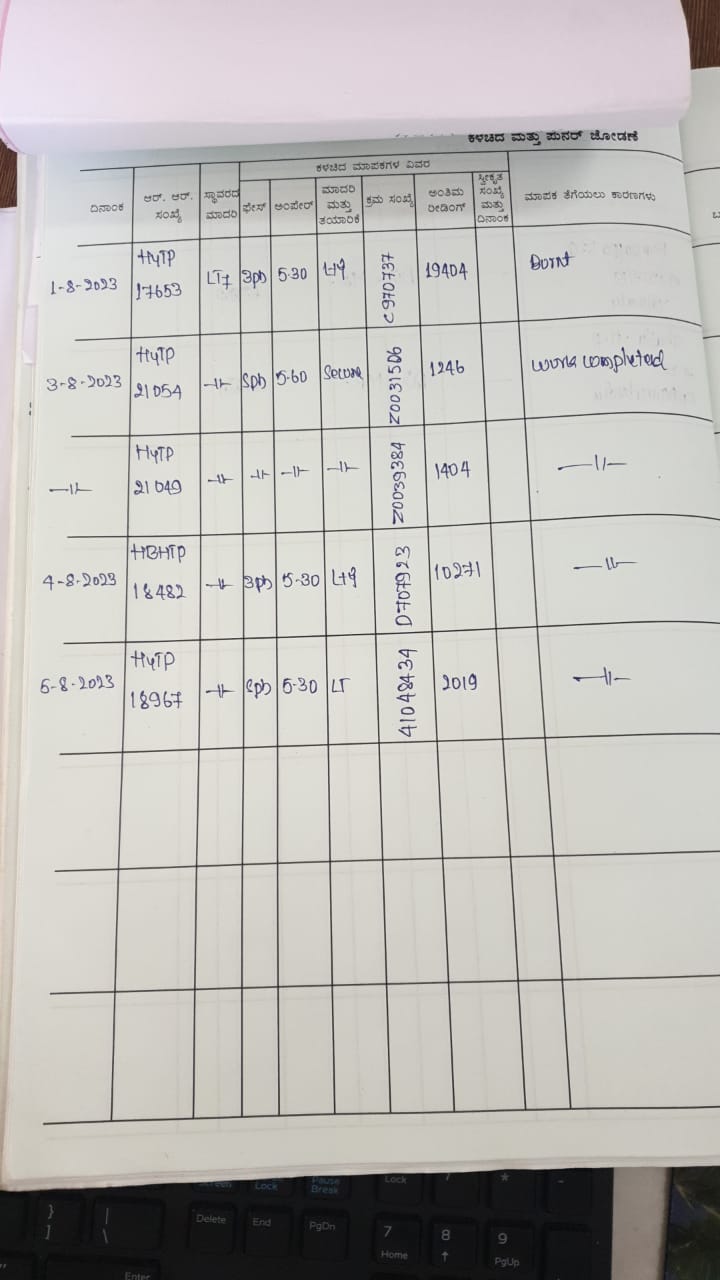 ಕಳಚಿದ ಮತ್ತು ಪುನರ್ ಜೋಡಣೆ
ಕಳಚಿದ ಮಾಪಕಗಳ ವಿವರ
ದಿನಾಂಕ ಆರ್. ಆರ್. ಸಂಖ್ಯೆ ಸ್ಥಾವರದ ಮಾದರಿ ಫೇಸ್ ಅಂಪೇರ್ ಮಾದರಿ ಮತ್ತು ತಯಾರಿಕೆ ಕ್ರಮ ಸಂಖ್ಯೆ ಅಂತಿಮ ರೀಡಿಂಗ್ ಸ್ವೀಕೃತ ಸಂಖ್ಯೆ ಮತ್ತು ದಿನಾಂಕ ಮಾಪಕ ತೆಗೆಯಲು ಕಾರಣಗಳು
1-8-2023 HyTP 17653 LT7 3ph 5-30 L+G C970737 19404 Burnt
3-8-2023 HyTP 21054 -11- 3ph 5-60 Secure Z0031506 1246 work completed
-11- HyTP 21049 -11- -11- -11- -11- Z0039384 1404 -11-
4-8-2023 HBHTP 18482 -11- 3ph 5-30 L+G D707923 10271 -11-
5-8-2023 HyTP 18967 -11- 5-30 LT 41048434 2019 -11-
Lock
Pause
Break
Lock
Delete
End
PgDn
7
Home
8
9
PgUp
Enter